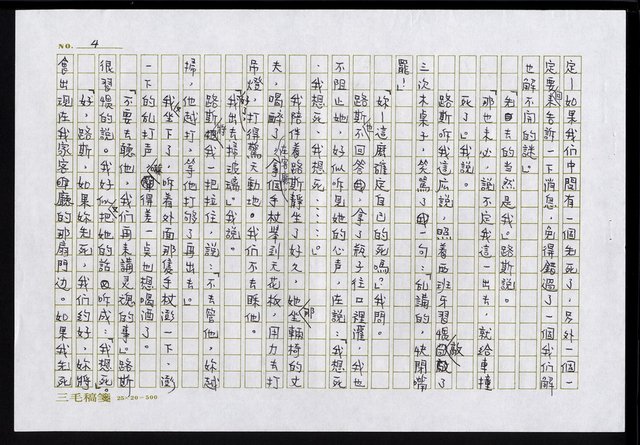 NO. 4
定！如果我們中間有一個先死了，另外一個一
定要回來告訴一下消息，免得錯過了一個我們解
也解不開的謎。」
「先去的當然是我。」路斯說。
「那也未必，說不定我這一出去，就給車撞
死了。」我說。
路斯听我這麼說，照着西班牙習慣敲敲了
三次木桌子，笑駡了我一句：「乱講的，快閉嘴
罷！」
「妳！這麼確定自己的死嗎？」我問。
路斯也不回答，拿了瓶子往口裡灌，我也
不阻止她，好似听見她的心声，在說：「我想死
，我想死，我想死……。」
我陪伴着路斯靜坐了好久，她那坐輪椅的丈
夫，喝醉了，在客廳拿個手杖舉到天花板，用力去打
吊燈，打得驚天動地。我們不去睬他。
「我出去掃玻璃。」我說。
路斯將我一把拉住，說：「不去管他，妳越
掃，他越打，等他打夠了再出去。」
我又坐下了，听着外面那隻手杖澎一下、澎
一下的乱打声，嚇得差一点也想喝酒了。
「不要去聽他，我們再來講灵魂的事。」路斯
很習慣的說。我好似又把她的話听成：「我想死。」
「好，路斯，如果妳先死，我們約好，妳將
會出現在我家客廳的那扇門边。如果我先死
三毛稿箋 25×20=500